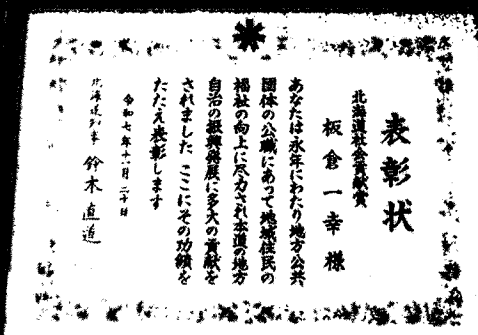 表彰状
北海道社会貢献賞
板倉一幸様
あなたは永年にわたり地方公共
団体の公職にあって地域住民の
福祉の向上に尽力され本道の地方
自治の振興発展に多大の貢献を
されました ここにその功績を
たたえ表彰します
令和七年十一月二十日
北海道知事 鈴木直道